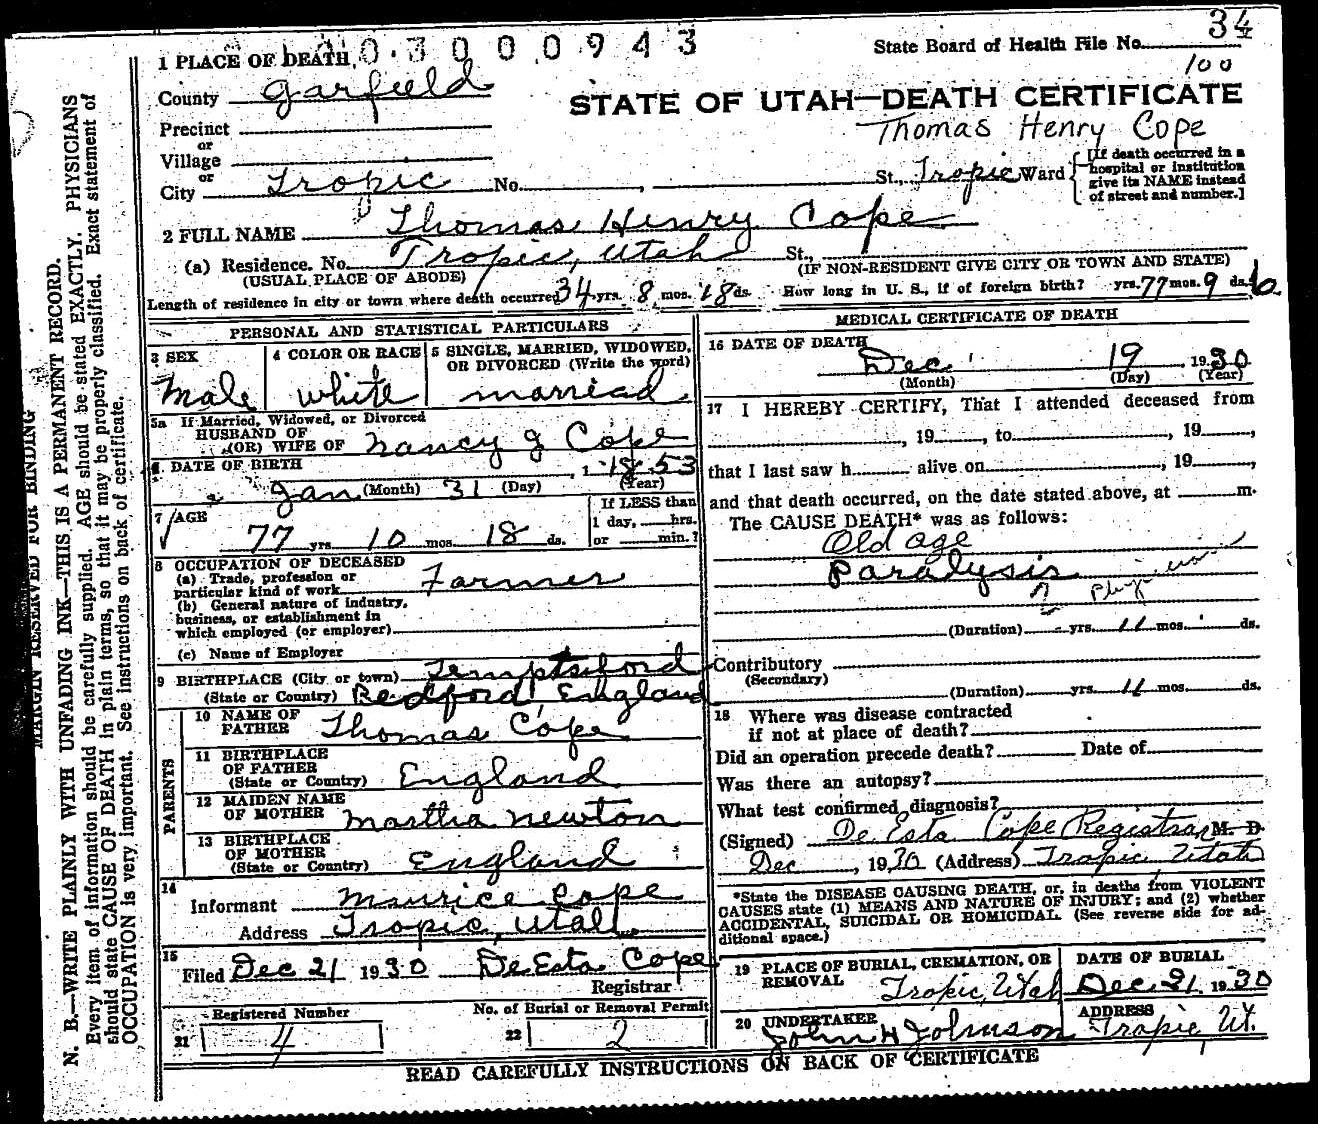 34
0 3 0 0 0 9 4 3
State Board of Health File No.
100
1 PLACE OF DEATH
County Garfield
STATE OF UTAH—DEATH CERTIFICATE
Thomas Henry Cope
Precinct
or
Village
or
City Tropic No. , St., Tropic Ward
[If death occurred in a
hospital or institution
give its NAME instead
of street and number.]
2 FULL NAME Thomas Henry Cope
(a) Residence. No. Tropic, Utah St.,
(USUAL PLACE OF ABODE) (IF NON-RESIDENT GIVE CITY OR TOWN AND STATE)
Length of residence in city or town where death occurred 34 yrs. 8 mos. 18 ds. How long in U. S., if of foreign birth? yrs. 77 mos. 9 ds.
PERSONAL AND STATISTICAL PARTICULARS
3 SEX
Male
4 COLOR OR RACE
white
5 SINGLE, MARRIED, WIDOWED,
OR DIVORCED (Write the word)
married
5a If Married, Widowed, or Divorced
HUSBAND OF
(OR) WIFE OF Nancy J Cope
DATE OF BIRTH
Jan (Month) 31 (Day) 1853 (Year)
7 AGE
77 yrs. 10 mos. 18 ds.
If LESS than
1 day, hrs.
or min.?
8 OCCUPATION OF DECEASED
(a) Trade, profession or
particular kind of work Farmer
(b) General nature of industry,
business, or establishment in
which employed (or employer)
(c) Name of Employer
9 BIRTHPLACE (City or town) Temptsford
(State or Country) Bedford, England
PARENTS
10 NAME OF
FATHER Thomas Cope
11 BIRTHPLACE
OF FATHER
(State or Country) England
12 MAIDEN NAME
OF MOTHER Martha Newton
13 BIRTHPLACE
OF MOTHER
(State or Country) England
14
Informant Maurice Cope
Address Tropic, Utah.
15
Filed Dec 21 1930 DeEsta Cope
Registrar
Registered Number
21 4
No. of Burial or Removal Permit
22 2
MEDICAL CERTIFICATE OF DEATH
16 DATE OF DEATH
Dec. 19 1930
(Month) (Day) (Year)
17 I HEREBY CERTIFY, That I attended deceased from
, 19 , to , 19 ,
that I last saw h alive on , 19 ,
and that death occurred, on the date stated above, at m.
The CAUSE DEATH* was as follows:
Old age
Paralysis
(Duration) yrs. 11 mos. ds.
Contributory
(Secondary)
(Duration) yrs. 11 mos. ds.
18 Where was disease contracted
if not at place of death?
Did an operation precede death? Date of
Was there an autopsy?
What test confirmed diagnosis?
(Signed) De Esta Cope Registrar M. D
Dec , 1930 (Address) Tropic Utah
*State the DISEASE CAUSING DEATH, or, in deaths from VIOLENT
CAUSES state (1) MEANS AND NATURE OF INJURY; and (2) whether
ACCIDENTAL, SUICIDAL OR HOMICIDAL. (See reverse side for ad-
ditional space.)
19 PLACE OF BURIAL, CREMATION, OR
REMOVAL Tropic, Utah
DATE OF BURIAL
Dec. 21 1930
20 UNDERTAKER
John H Johnson
ADDRESS
Tropic, Ut.
READ CAREFULLY INSTRUCTIONS ON BACK OF CERTIFICATE
MARGIN RESERVED FOR BINDING
N. B.—WRITE PLAINLY WITH UNFADING INK—THIS IS A PERMANENT RECORD.
Every item of information should be carefully supplied. AGE should be stated EXACTLY. PHYSICIANS
should state CAUSE OF DEATH in plain terms, so that it may be properly classified. Exact statement of
OCCUPATION is very important. See instructions on back of certificate.